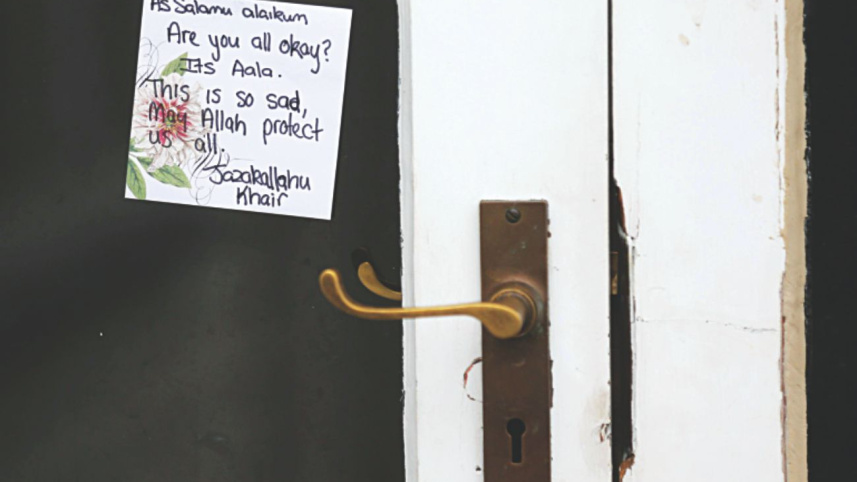 As Salamu alaikum
Are you all okay?
Its Aala.
This is so sad,
May Allah protect
us all.
Jazakallahu
Khair